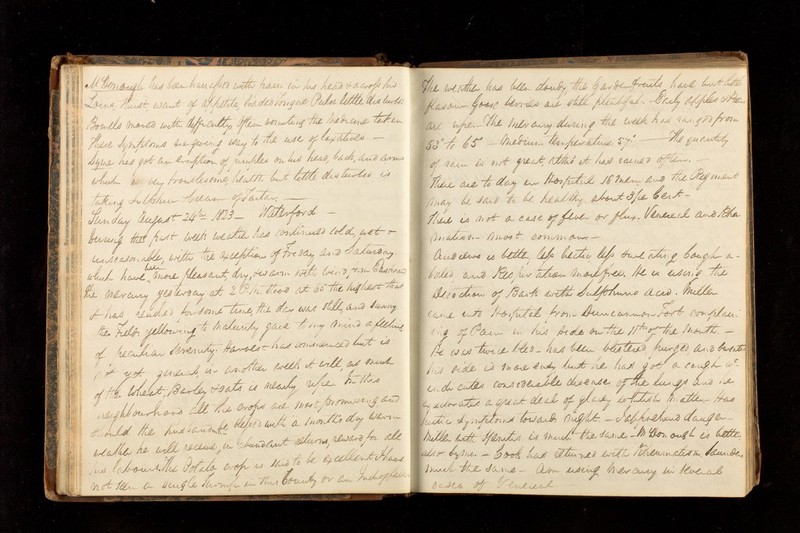 McDonough has been harrassed with pain in his head & across his
Loins, thirst want of appetite loaded tongue Pulse little disturbed
Bowels moved with difficulty often vomiting the medicine taken
these symptoms are giving way to the use of laxatives —
Lyne has got an eruption of pimples on his head, back, and arms
which is very troublesome, health but little disturbed is
taking Sulphur & Cream of Tartar. —
Sunday August 24th 1823 — Waterford —
During the past week weather has continued cold, wet &
unseasonable, with the exception of Friday and Saturday
which have been more pleasant, dry, & warm with wind, from
the Mercury yesterday at 2 P.M. stood at 65 the highest that
it has reached for some time, the day was still, and seeing
the Fields yellowing to maturity gave to my mind a feeling
of peculiar serenity. Harvest has commenced but is
not yet general in another week it will, as much
of the Wheat, Barley & oats is nearly ripe. In this
neighbourhood all the crops are most promising and
should the husbandman be blessed with a month's dry warm
weather he will receive, in abundant returns, reward for all
his labours. The Potato crop is said to be excellent. I have
not seen a single Turnip in this County or
The weather has been cloudy the Garden fruits have but little
flavour Goose berries are still plentiful. Early apples &
are upon. The Mercury during the week has ranged from
53° to 65 — Medium Temperature 57° — The quantity
of rain is not great, altho it has rained often. —
There are to day in Hospital 16 men and the Regiment
may be said to be healthy about 3 per Cent —
There is not a case of fever or flux. Venereal and Rheu
matism most common —
Andrews is better, less hectic less sweating Cough a-
bated and Respiration more free. He is using the
Decoction of Bark with Sulphuric Acid. Miller
came into Hospital from Duncannon Fort complain
ing of Pain in his side on the 11th of the month —
He was twice bled — has been blistered, purged, and
his side is more easy but he has got a cough wh.
indicates considerable disease of the lungs and he
expectorates a great deal of glairy whitish matter. Has
hectic symptoms towards night. — I apprehend danger
Miller with Hepatitis is much the same — McDonough is better
also Lyne — Cook has returned with Rheumatism, Saunders
much the same — Am using Mercury in several
cases of Venereal